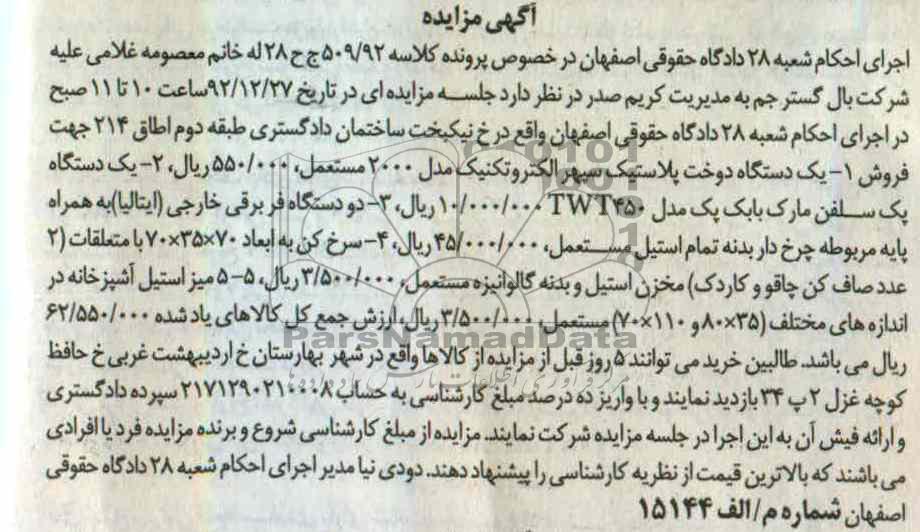 آگهی مزایده
اجرای احکام شعبه ۲۸ دادگاه حقوقی اصفهان در خصوص پرونده کلاسه ۵۰۹/۹۲ج ح ۲۸ له خانم معصومه غلامی علیه
شرکت بال گستر جم به مدیریت کریم صدر در نظر دارد جلسه مزایده ای در تاریخ ۹۲/۱۲/۲۷ساعت ۱۰ تا ۱۱ صبح
در اجرای احکام شعبه ۲۸ دادگاه حقوقی اصفهان واقع در خ نیکبخت ساختمان دادگستری طبقه دوم اطاق ۲۱۴ جهت
فروش ۱- یک دستگاه دوخت پلاستیک سپهر الکتروتکنیک مدل ۲۰۰۰ مستعمل، ۵۵۰/۰۰۰ ریال، ۲- یک دستگاه
پک سلفن مارک بابک پک مدل TWT۴۵۰ ۱۰/۰۰۰/۰۰۰ ریال، ۳- دو دستگاه فر برقی خارجی (ایتالیا)به همراه
پایه مربوطه چرخ دار بدنه تمام استیل مستعمل، ۴۵/۰۰۰/۰۰۰ ریال، ۴- سرخ کن به ابعاد ۷۰×۳۵×۷۰ با متعلقات (۲
عدد صاف کن چاقو و کاردک) مخزن استیل و بدنه گالوانیزه مستعمل، ۳/۵۰۰/۰۰۰ ریال، ۵- ۵ میز استیل آشپزخانه در
اندازه های مختلف (۳۵×۸۰ و ۱۱۰×۷۰) مستعمل ۳/۵۰۰/۰۰۰ ریال، ارزش جمع کل کالاهای یاد شده ۶۲/۵۵۰/۰۰۰
ریال می باشد. طالبین خرید می توانند ۵ روز قبل از مزایده از کالاها واقع در شهر بهارستان خ اردیبهشت غربی خ حافظ
کوچه غزل ۲ پ ۳۴ بازدید نمایند و با واریز ده درصد مبلغ کارشناسی به حساب ۲۱۷۱۲۹۰۲۱۰۰۰۸ سپرده دادگستری
و ارائه فیش آن به این اجرا در جلسه مزایده شرکت نمایند. مزایده از مبلغ کارشناسی شروع و برنده مزایده فرد یا افرادی
می باشند که بالاترین قیمت از نظریه کارشناسی را پیشنهاد دهند. دودی نیا مدیر اجرای احکام شعبه ۲۸ دادگاه حقوقی
اصفهان شماره م/الف ۱۵۱۴۴
ParsNamadData